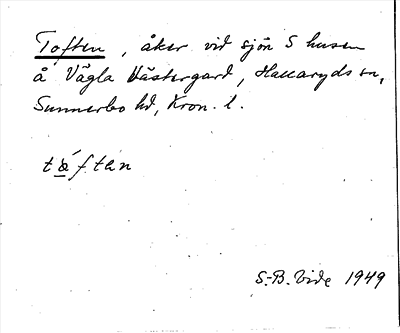 Toften, åker vid sjön S husen
å Vägla Västergard, Hallaryds sn,
Sunnerbo hd, Kron. l.
táften
S.-B. Vide 1949